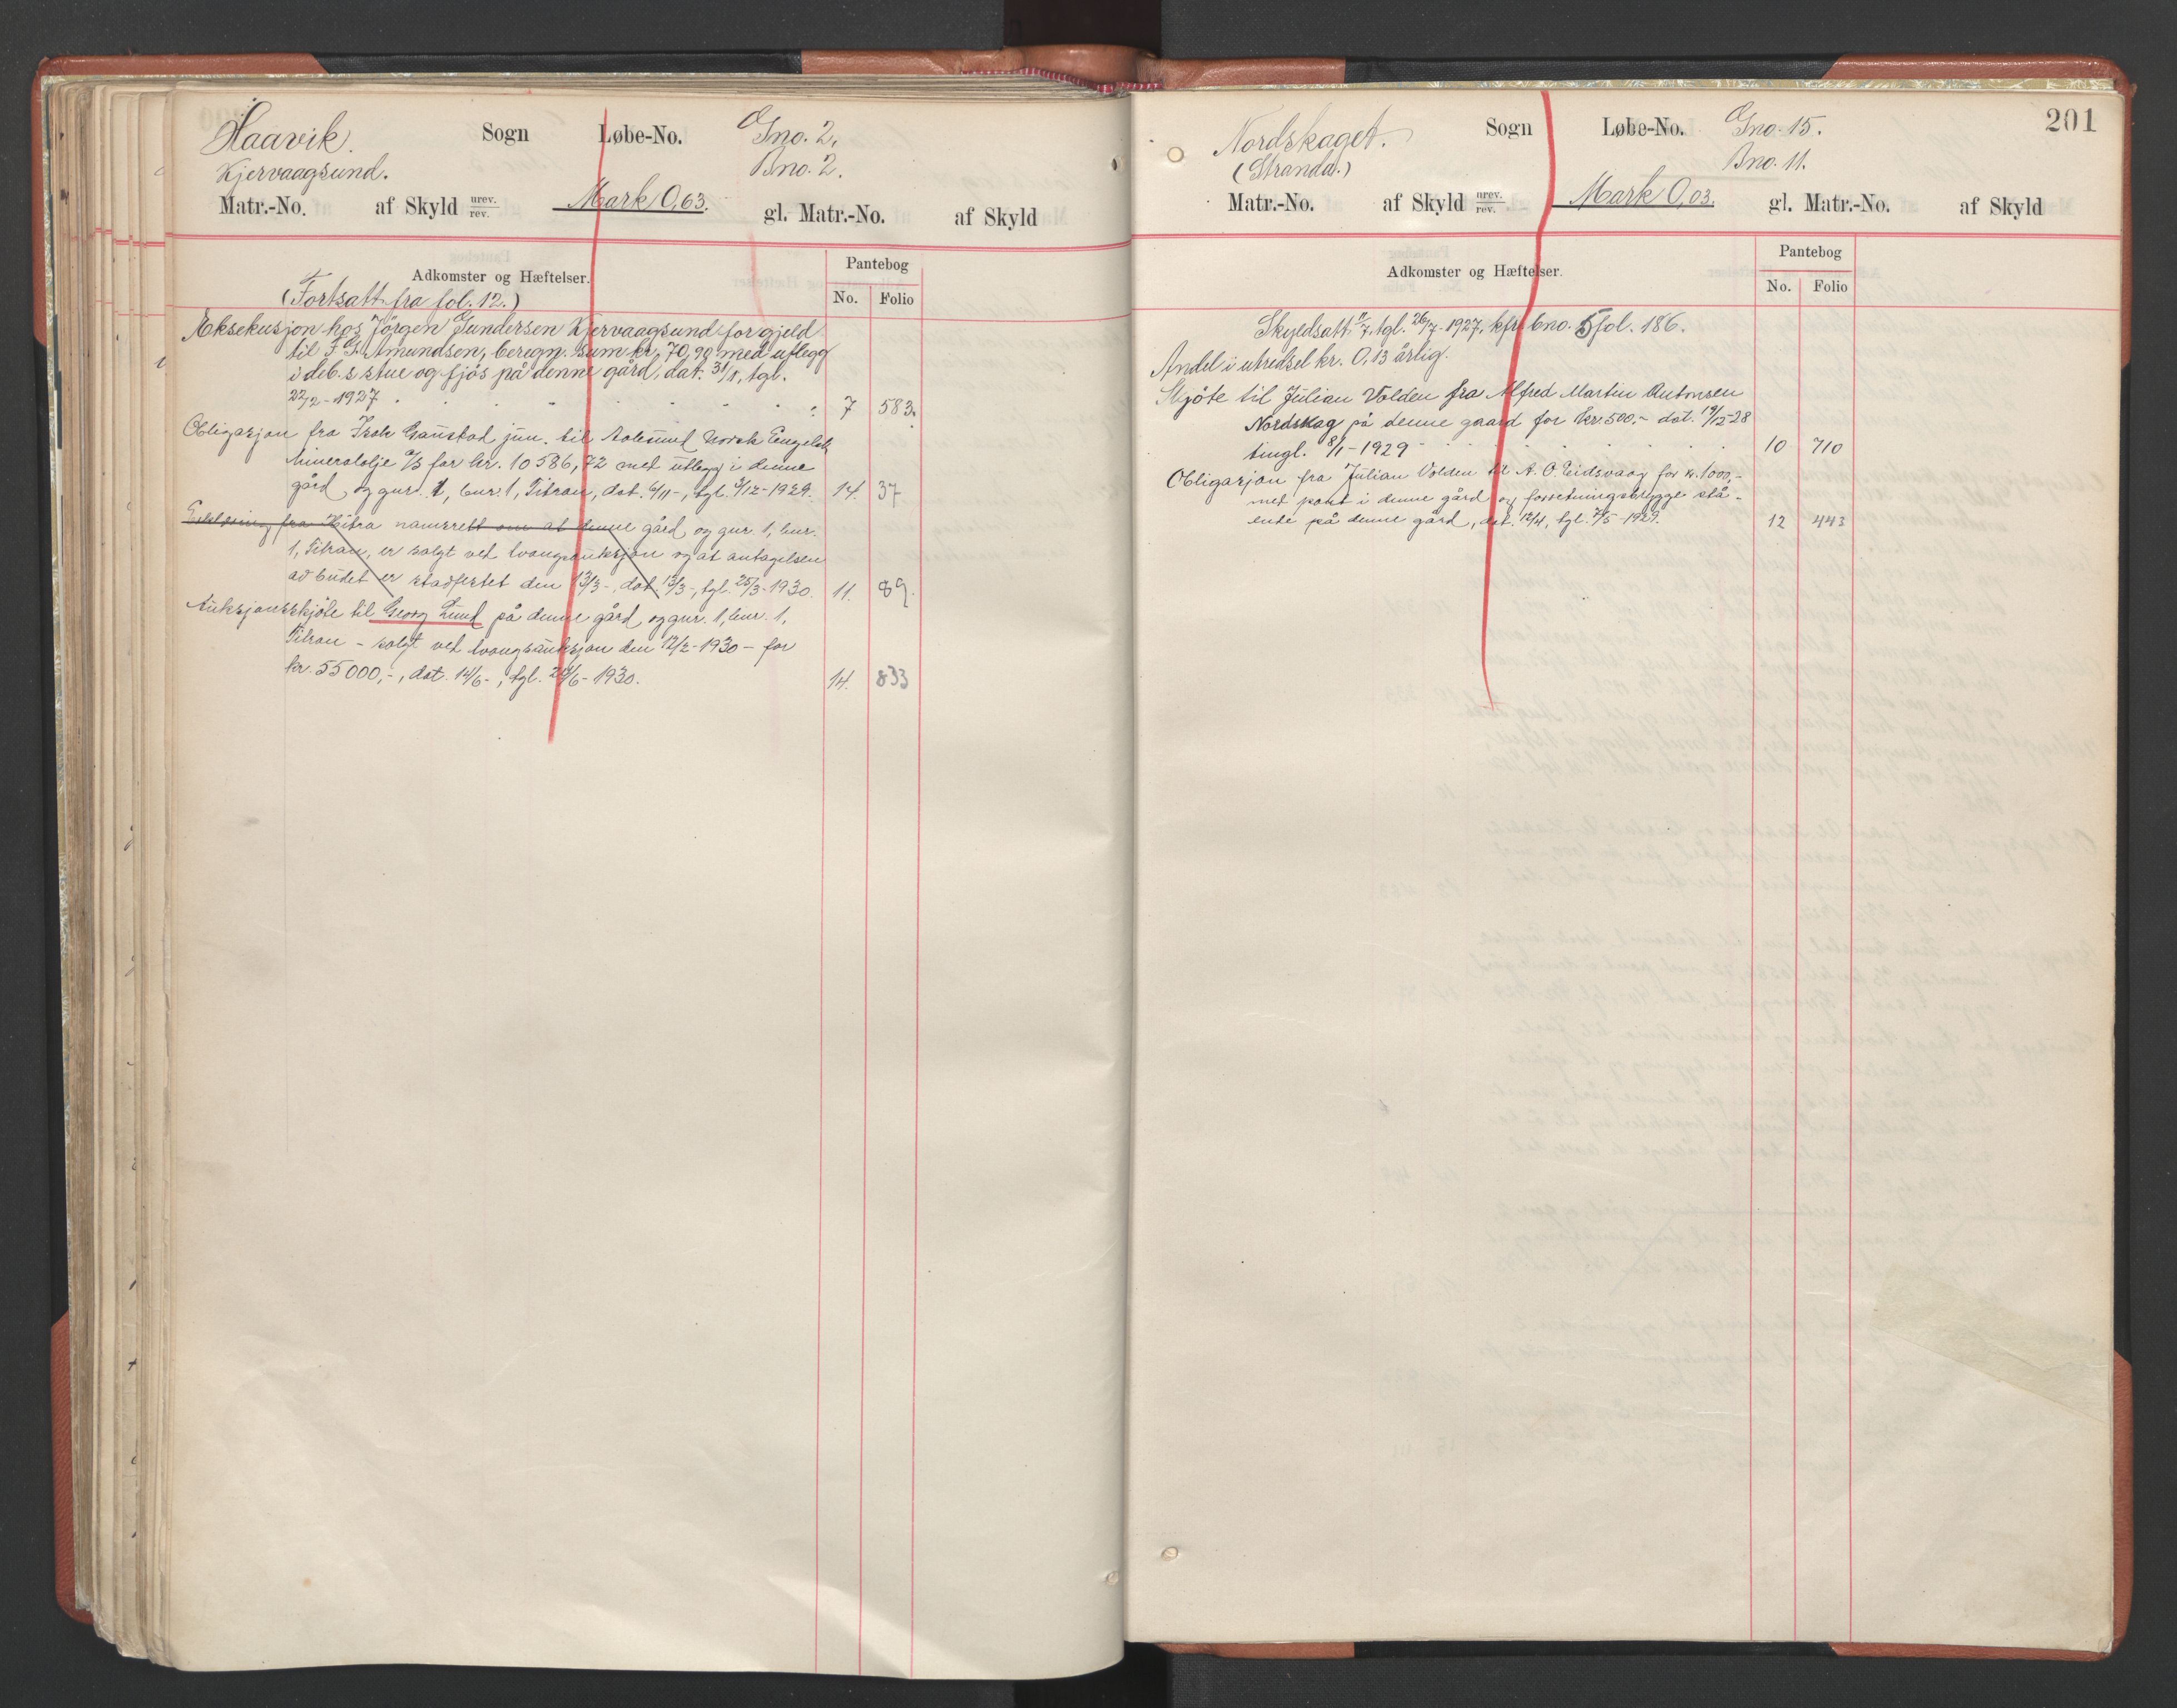 Haavik. Sogn Løbe-No. Gno. 2.
Kjervaagsund. Bno. 2.
Matr.-No. af Skyld urev. rev. Mark 0,63. gl. Matr.-No. af Skyld
Adkomster og Hæftelser. Pantebog
(Fortsatt fra fol. 12.) No. Folio
Eksekusjon hos Jörgen Gundersen Kjervaagsund for gjeld
til F. G. Amundsen, beregn. sum kr. 70,90 med utlegg
i deb.s stue og fjös på denne gård, dat. 31/1, tgl.
22/2-1927 . 7 583.
Obligasjon fra Isak Gaustad jun. til Aalesund Norsk Engelsk
Mineralolje A/S for kr. 10586,72 med utlegg i denne
gård og gnr. 1, bnr. 1, Titran, dat. 6/11-, tgl. 9/12-1929. 14. 37
Erklæring fra Hitra namsrett om at denne gård og gnr. 1, bnr.
1, Titran, er solgt ved tvangsauksjon og at antagelsen
av budet er stadfestet den 13/3-, dat. 13/3-, tgl. 25/3-1930. 11. 89.
Auksjonsskjöte til Georg Lund på denne gård og gnr. 1, bnr. 1,
Titran - solgt ved tvangsauksjon den 12/2-1930 - for
kr. 55000,-, dat. 14/6-, tgl. 24/6-1930. 14. 833
201
Nordskaget. Sogn Løbe-No. Gno. 15.
(Stranda.) Bno. 11.
Matr.-No. af Skyld urev. rev. Mark 0,03. gl. Matr.-No. af Skyld
Adkomster og Hæftelser. Pantebog
No. Folio
Skyldsatt /7, tgl. 26/7-1927, kfr. bno. 5 fol. 186.
Andel i utredsel kr. 0,13 årlig.
Skjöte til Julian Volden fra Alfred Martin Antonsen
Nordskag på denne gaard for kr. 500.- dat. 19/12-28
tingl. 8/1-1929 10 710
Obligasjon fra Julian Volden til A. O. Eidsvaag for kr. 1000,-
med pant i denne gård og forretningsbrygge stå-
ende på denne gård, dat. 12/4, tgl. 7/5-1929. 12 443